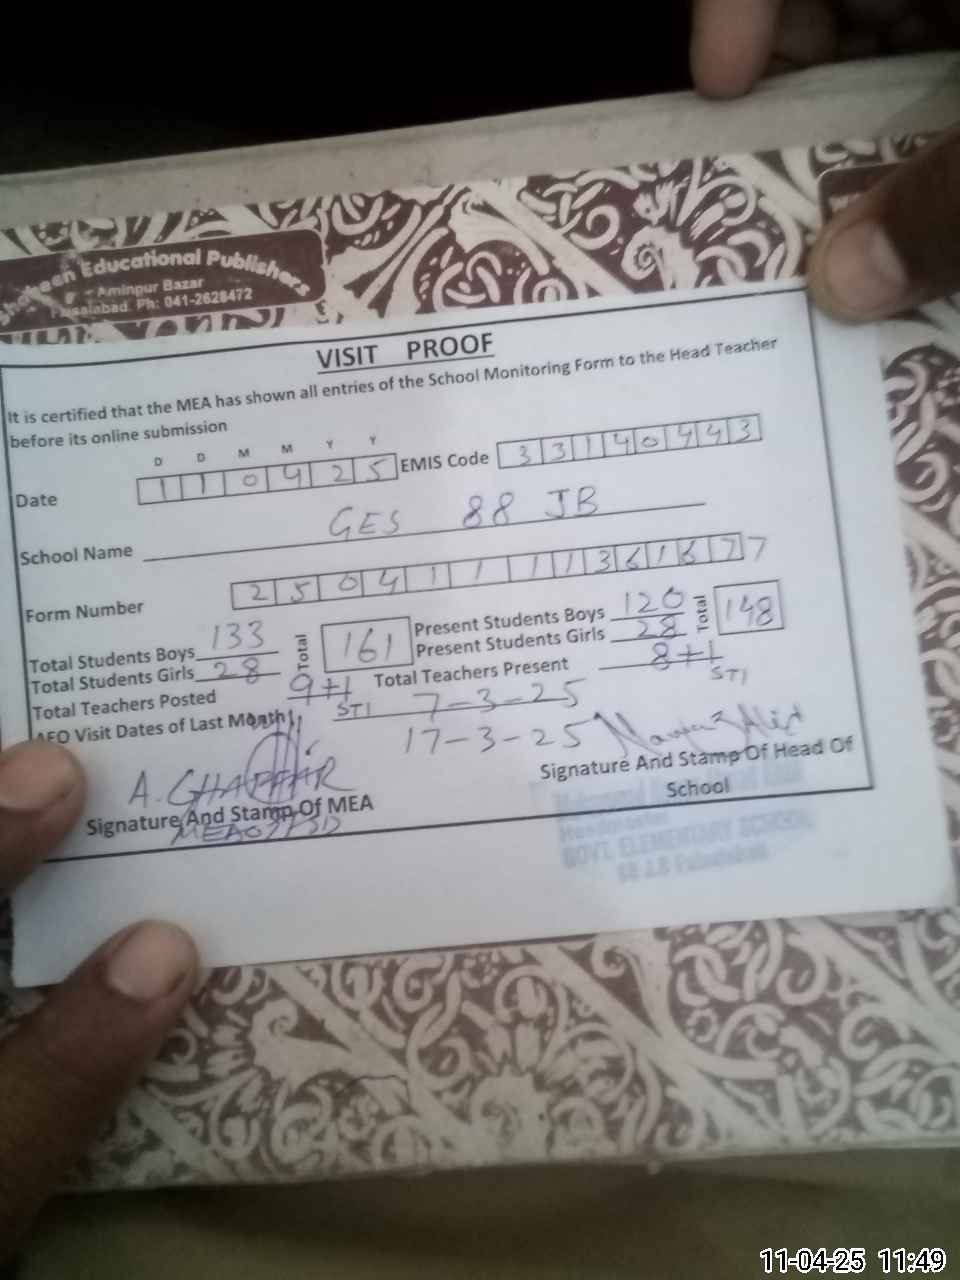 Shaheen Educational Publishers
Aminpur Bazar
Faisalabad. Ph: 041-2628472
VISIT PROOF
It is certified that the MEA has shown all entries of the School Monitoring Form to the Head Teacher
before its online submission
D D M M Y Y
Date 1 1 0 4 2 5 EMIS Code 3 3 1 4 0 4 4 3
School Name GES 88 JB
Form Number 2 5 0 4 1 1 1 1 1 3 6 1 6 7 7
Total Students Boys 133 Total 161 Present Students Boys 120 Total 148
Total Students Girls 28 Present Students Girls 28
Total Teachers Posted 9+1 STI Total Teachers Present 8+1 STI
AEO Visit Dates of Last Month 7-3-25
17-3-25
A. GHAFFAR
Signature And Stamp Of MEA
Signature And Stamp Of Head Of
School
GOVT. ELEMENTARY SCHOOL
88 J.B Faisalabad
11-04-25 11:49